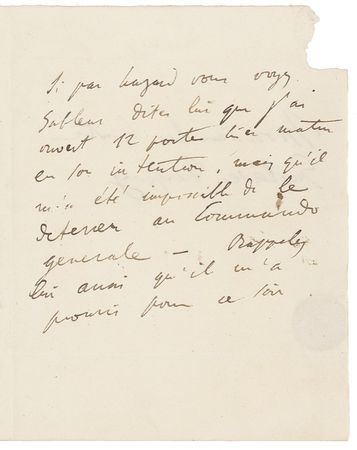 Si par hazard vous voyez
dites lui que j'ai
ouvert 12 porte hier matin
en son intention, mais qu'il
m'a été impossible de le
deterrer au Commando
generale — Rappelez
lui aussi qu'il m'a
promis pour ce soir